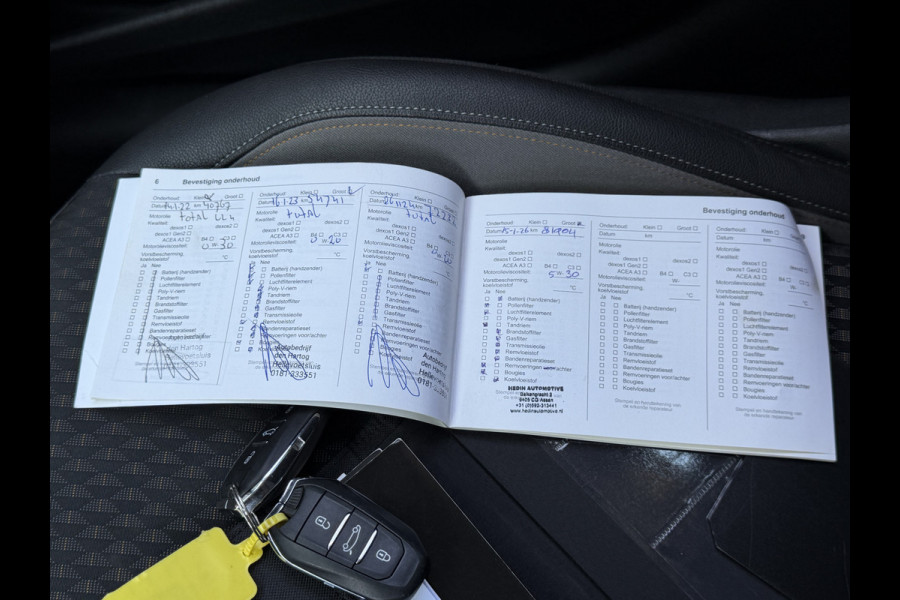 6 Bevestiging onderhoud
Onderhoud: Klein Groot
14-1-22 km 40767
Motorolie total
Kwaliteit:
dexos1 dexos2
dexos1 Gen2
ACEA A3 B4 C3
Motorolieviscositeit: 0 W 30
Vorstbescherming, koelvloeistof °C
Ja Nee
Batterij (handzender)
Pollenfilter
Luchtfilterelement
Poly-V-riem
Tandriem
Brandstoffilter
Gasfilter
Transmissieolie
Remvloeistof
Bandenreparatieset
Onderhoud: Klein Groot
Datum 16-1-23 km
Motorolie total
Kwaliteit:
dexos1 dexos2
dexos1 Gen2
ACEA A3 B4 C3
Motorolieviscositeit: 0 W 20
Vorstbescherming, koelvloeistof °C
Ja Nee
Batterij (handzender)
Pollenfilter
Luchtfilterelement
Poly-V-riem
Tandriem
Brandstoffilter
Gasfilter
Transmissieolie
Remvloeistof
Bandenreparatieset
Remvoeringen voor/achter
Autobedrijf
den Hartog
Hellevoetsluis
0181-333551
Onderhoud: Klein Groot
Datum km
Motorolie total
Kwaliteit:
dexos1 dexos2
dexos1 Gen2
ACEA A3
Motorolieviscositeit:
Vorstbescherming, koelvloeistof °C
Ja Nee
Batterij (handzender)
Pollenfilter
Luchtfilterelement
Poly-V-riem
Tandriem
Brandstoffilter
Gasfilter
Transmissieolie
Remvloeistof
Bandenreparatieset
Bevestiging onderhoud
Onderhoud: Klein Groot
Datum 15-1-26 km
Motorolie
Kwaliteit:
dexos1 dexos2
dexos1 Gen2
ACEA A3 B4 C3
Motorolieviscositeit: 5 W 30
Vorstbescherming, koelvloeistof °C
Ja Nee
Batterij (handzender)
Pollenfilter
Luchtfilterelement
Poly-V-riem
Tandriem
Brandstoffilter
Gasfilter
Transmissieolie
Remvloeistof
Bandenreparatieset
Remvoeringen voor/achter
Bougies
Koelvloeistof
HEDIN AUTOMOTIVE
Balkengracht 3
9405 CD Assen
+31 (0)592-313441
www.hedinautomotive.nl
Onderhoud: Klein Groot
Datum km
Motorolie
Kwaliteit:
dexos1 dexos2
dexos1 Gen2
ACEA A3 B4 C3
Motorolieviscositeit: W-
Vorstbescherming, koelvloeistof °C
Ja Nee
Batterij (handzender)
Pollenfilter
Luchtfilterelement
Poly-V-riem
Tandriem
Brandstoffilter
Gasfilter
Transmissieolie
Remvloeistof
Bandenreparatieset
Remvoeringen voor/achter
Bougies
Koelvloeistof
Stempel en handtekening van de erkende reparateur
Onderhoud: Klein Groot
Datum km
Motorolie
Kwaliteit:
dexos1 dexos2
dexos1 Gen2
ACEA A3 B4 C3
Motorolieviscositeit: W-
Vorstbescherming, koelvloeistof °C
Ja Nee
Batterij (handzender)
Pollenfilter
Luchtfilterelement
Poly-V-riem
Tandriem
Brandstoffilter
Gasfilter
Transmissieolie
Remvloeistof
Bandenreparatieset
Remvoeringen voor/achter
Bougies
Koelvloeistof
Stempel en handtekening van de erkende reparateur